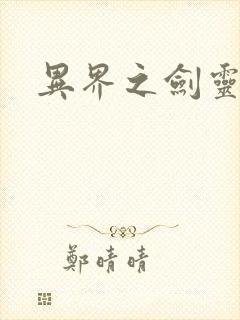 異界之劍靈
鄭晴晴